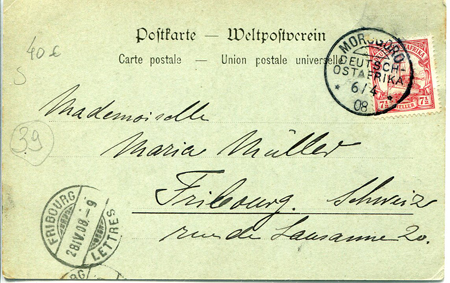 40€
S
39
Postkarte – Weltpostverein
Carte postale – Union postale universelle
MOROGORO
DEUTSCH-
OSTAFRIKA
6/4
08
7½ 7½
Mademoiselle
Maria Müller
Fribourg. Schweiz
rue de Lausanne 20.
FRIBOURG
28.IV.08.-9
LETTRES